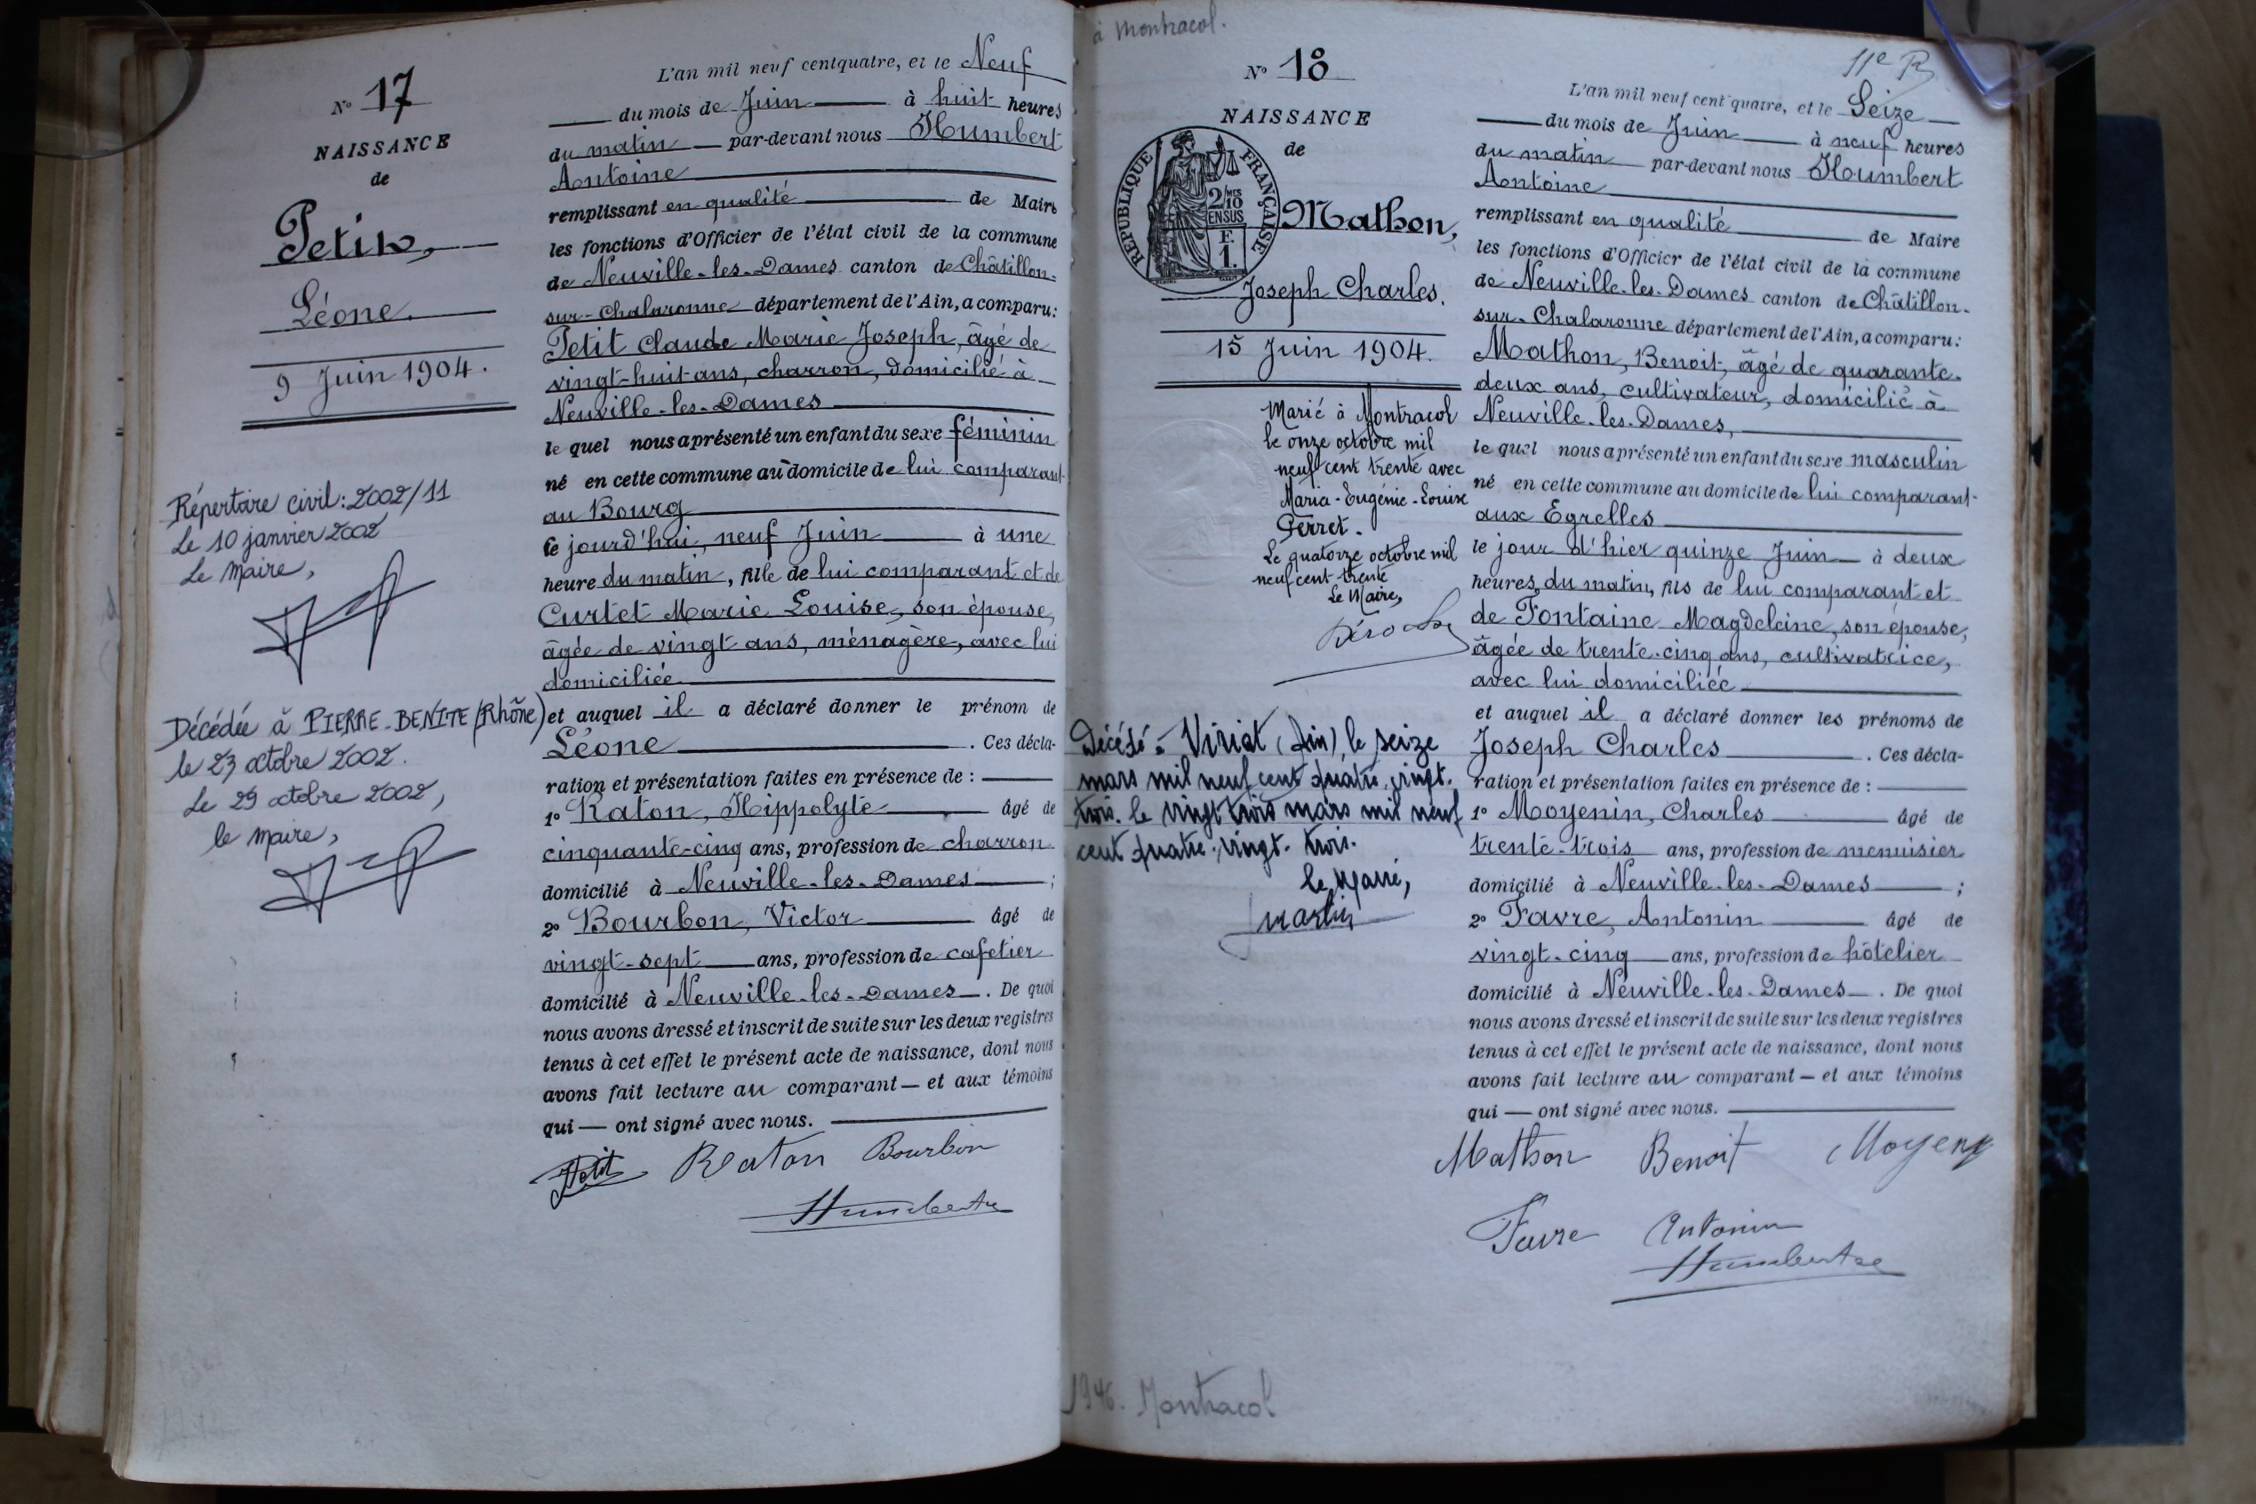 N° 17
NAISSANCE
de
Petit,
Léone.
9 Juin 1904.
Répertoire civil : 2002/11
Le 10 janvier 2002
Le Maire,
Décédée à PIERRE-BENITE (Rhône)
le 23 octobre 2002.
Le 29 octobre 2002,
le Maire,
L'an mil neuf cent quatre, et le Neuf
du mois de Juin à huit heures
du matin par-devant nous Humbert
Antoine
remplissant en qualité de Maire
les fonctions d'Officier de l'état civil de la commune
de Neuville-les-Dames canton de Châtillon-
sur-Chalaronne département de l'Ain, a comparu :
Petit Claude Marie Joseph, âgé de
vingt-huit ans, charron, domicilié à
Neuville-les-Dames
le quel nous a présenté un enfant du sexe féminin
né en cette commune au domicile de lui comparant
au Bourg
le jourd'hui, neuf Juin à une
heure du matin, fille de lui comparant et de
Curtet Marie Louise, son épouse,
âgée de vingt ans, ménagère, avec lui
domiciliée
et auquel il a déclaré donner le prénom de
Léone . Ces décla-
ration et présentation faites en présence de :
1° Raton, Hippolyte âgé de
cinquante-cinq ans, profession de charron
domicilié à Neuville-les-Dames ;
2° Bourbon, Victor âgé de
vingt-sept ans, profession de cafetier
domicilié à Neuville-les-Dames . De quoi
nous avons dressé et inscrit de suite sur les deux registres
tenus à cet effet le présent acte de naissance, dont nous
avons fait lecture au comparant — et aux témoins
qui — ont signé avec nous.
Petit Raton Bourbon
Humbert
à Montracol.
N° 18
NAISSANCE
de
RÉPUBLIQUE FRANÇAISE
2/10
EN SUS
F.
1.
Mathon,
Joseph Charles.
15 Juin 1904.
Marié à Montracol
le onze octobre mil
neuf cent trente avec
Maria-Eugénie-Louise
Perret.
Le quatorze octobre mil
neuf cent trente
Le Maire,
Décédé à Viriat (Ain) le seize
mars mil neuf cent quatre-vingt-
trois. le vingt trois mars mil neuf
cent quatre-vingt-trois.
le Maire,
Martin
1946. Montracol
11e R
L'an mil neuf cent quatre, et le Seize
du mois de Juin à neuf heures
du matin par-devant nous Humbert
Antoine
remplissant en qualité de Maire
les fonctions d'Officier de l'état civil de la commune
de Neuville-les-Dames canton de Châtillon-
sur-Chalaronne département de l'Ain, a comparu :
Mathon, Benoit, âgé de quarante-
deux ans, cultivateur, domicilié à
Neuville-les-Dames,
le quel nous a présenté un enfant du sexe masculin
né en cette commune au domicile de lui comparant
aux Egrelles
le jour d'hier quinze Juin à deux
heures du matin, fils de lui comparant et
de Fontaine Magdeleine, son épouse,
âgée de trente-cinq ans, cultivatrice,
avec lui domiciliée
et auquel il a déclaré donner les prénoms de
Joseph Charles . Ces décla-
ration et présentation faites en présence de :
1° Moyenin, Charles âgé de
trente-trois ans, profession de menuisier
domicilié à Neuville-les-Dames ;
2° Favre, Antonin âgé de
vingt-cinq ans, profession de hôtelier
domicilié à Neuville-les-Dames . De quoi
nous avons dressé et inscrit de suite sur les deux registres
tenus à cet effet le présent acte de naissance, dont nous
avons fait lecture au comparant — et aux témoins
qui — ont signé avec nous.
Mathon Benoit
Favre Antonin
Humbert